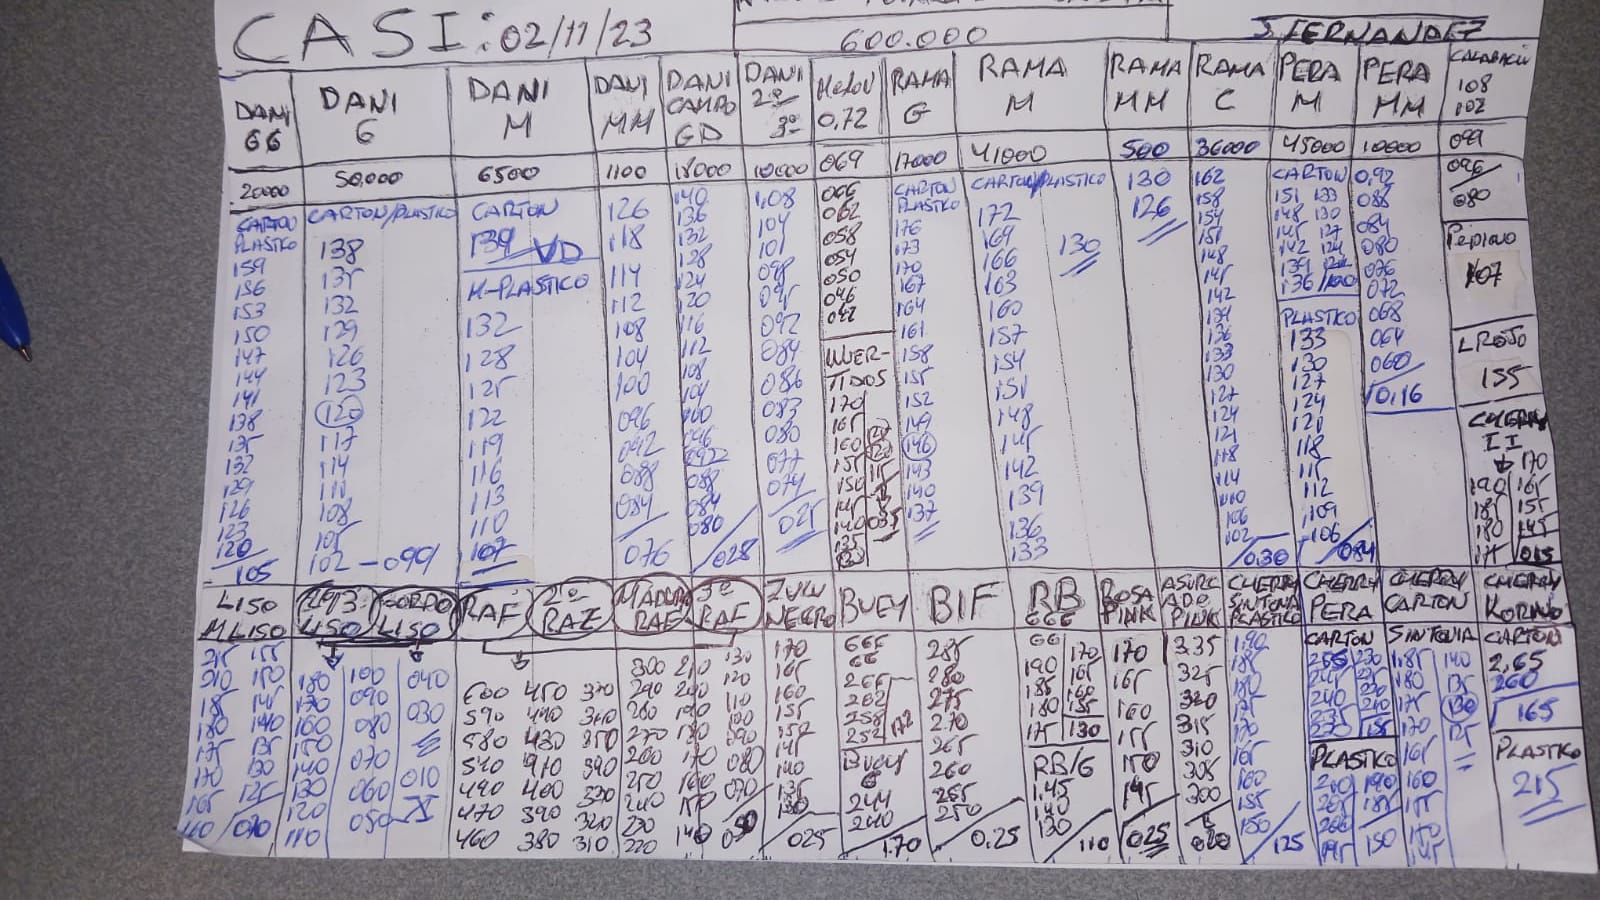 CASI: 02/11/23
600.000
J. FERNANDEZ
DANI GG
20000
CARTON
PLASTICO
159
156
153
150
147
144
141
138
135
132
129
126
123
120
105
DANI G
50.000
CARTON/PLASTICO
138
135
132
129
126
123
120
117
114
111
108
105
102 - 099
DANI M
6500
CARTON
139 VD
M-PLASTICO
132
128
125
122
119
116
113
110
107
DANI MM
1100
126
118
114
112
108
104
100
096
092
088
084
076
DANI CAMPO GD
18000
140
136
132
128
124
120
116
112
108
104
100
096
092
088
084
080
028
DANI 2ª 3ª
10000
1,08
104
101
098
095
092
089
086
083
080
077
074
025
MELON 0,72
069
066
062
058
054
050
046
042
INVERTIDOS
170
165
160
155
150
145
140
135
RAMA G
17000
CARTON
PLASTICO
176
173
170
167
164
161
158
155
152
149
146
143
140
137
RAMA M
41000
CARTON/PLASTICO
172
169
166
163
160
157
154
151
148
145
142
139
136
133
130
RAMA MM
500
130
126
RAMA C
36000
162
158
154
151
148
145
142
139
136
133
130
127
124
121
118
114
110
106
102
0.30
PERA M
45000
CARTON
151 133
148 130
145 127
142 124
139
136
PLASTICO
133
130
127
124
121
118
115
112
109
106
084
PERA MM
10000
0,92
088
084
080
076
072
068
064
060
0,16
CALABACIN
108
102
099
096
080
PEPINO
107
L ROJO
155
CHERRY II
170
190 165
185 155
180 145
175 015
LISO
M LISO
215 155
210 150
185 145
180 140
175 135
170 130
165 125
160 070
LISO
GORDO LISO
180 100 040
170 090 030
160 080
150 070
140 060 010
130 050
120
110
RAF
2ª RAF
600 450 370
590 440 360
580 430 350
540 410 340
490 400 330
470 390 320
460 380 310
MADURO RAF
3ª RAF
300 210 130
290 200 120
280 190 110
270 180 100
260 170 090
250 160 080
240 150 070
230 140
220
ZULU NEGRO
170
165
160
155
150
145
140
135
130
025
BUEY
666
66
265
262
258
252
BUEY G
244
240
1.70
BIF
285
280
275
270
265
260
255
250
0.25
RB 666
66
190 170
185 165
180 160
175 155
130
RB/G
1.45
140
130
110
ROSA PINK
170
165
160
155
150
145
025
ASURCADO PINK
3.35
325
320
315
310
305
300
020
CHERRY SINTONIA PLASTICO
190
185
180
175
170
165
160
155
150
125
CHERRY PERA
CARTON
255 230
245 225
240 220
235
230 155
PLASTICO
210 190
205 185
200
195 150
CHERRY CARTON
SINTONIA
1,85 140
180 135
175 130
170 125
165
160
155
150
145
CHERRY KORINO
CARTON
2,65
260
165
PLASTICO
215